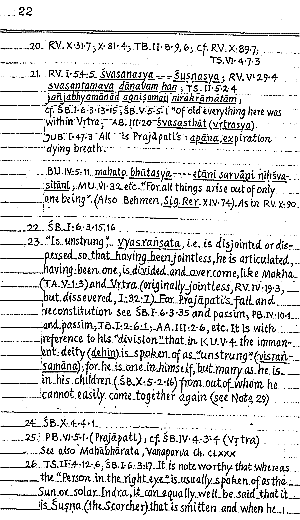 22
20. RV.X.31.7; X.81.4; TB.II.8.9,6; cf. RV.X.89.7,
TS.VI.4.7.3
21. RV.I.54.5 śvasanasya -- śuṣṇasya; RV.V.29.4
śvasantamava dānavam han; TS.II.5.2.4
jañjabhyamānād agniṣomau nirakrāmatām;
cf. ŚB.I.6.3.13-15; ŚB.V.5.5.1 "Of old everything here was
within Vṛtra; AB.III.20 śvasathāt (vṛtrasya).
JUB.I.47.3 "All is Prajāpati's apāna, expiration
dying breath.
BU.IV.5.11 mahato bhūtasya -- etāni sarvāṇi niḥśva-
sitāni, MU.VI.32 etc. "For all things arise out of only
one being". (Also Behmen, Sig. Rer. XIV.74). As in RV.X.90.
22. ŚB.I.6.3.15,16
23. "Is unstrung", vyasraṅsata, i.e. is disjointed or dis-
persed, so that having been jointless, he is articulated,
having been one, is divided and overcome, like Makha
(TA.V.1.3) and Vṛtra (originally jointless, RV.IV.19.3,
but dissevered, I.32.7). For Prajāpati's fall and
reconstitution see ŚB.I.6.3.35 and passim, PB.IV.10.1
and passim, TB.I.2.6.1, AA.III.2.6, etc. It is with
reference to his "division" that in KU.V.4 the imman-
ent deity (dehin) is spoken of as "unstrung" (visraṅ-
samāna); for he is one in himself, but many as he is
in his children (ŚB.X.5.2.16) from out of whom he
cannot easily come together again (see Note 29)
24. ŚB.X.4.4.1
25. PB.VI.5.1. (Prajāpati); cf. ŚB.IV.4.3.4 (Vṛtra)
See also Mahābhārata, Vanaparva Ch.
26. TS.II.4.12.6, ŚB.I.6.3.17. It is noteworthy that whereas
the "Person in the right eye" is usually spoken of as the
Sun or solar Indra, it can equally well be said that it
is Śuṣṇa (the Scorcher) that is smitten and when he